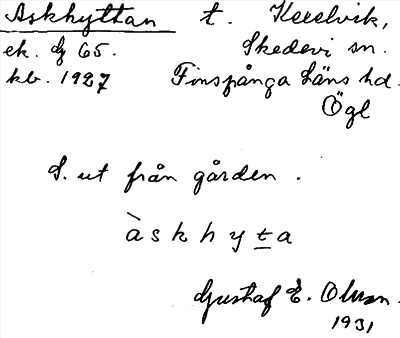 Askhyttan t. Kexelvik,
ek. bg 65. Skedevi sn.
kb. 1927 Finspånga Läns hd.
Ögl
S. ut från gården.
àskhyta
Gustaf E. Olsson.
1931